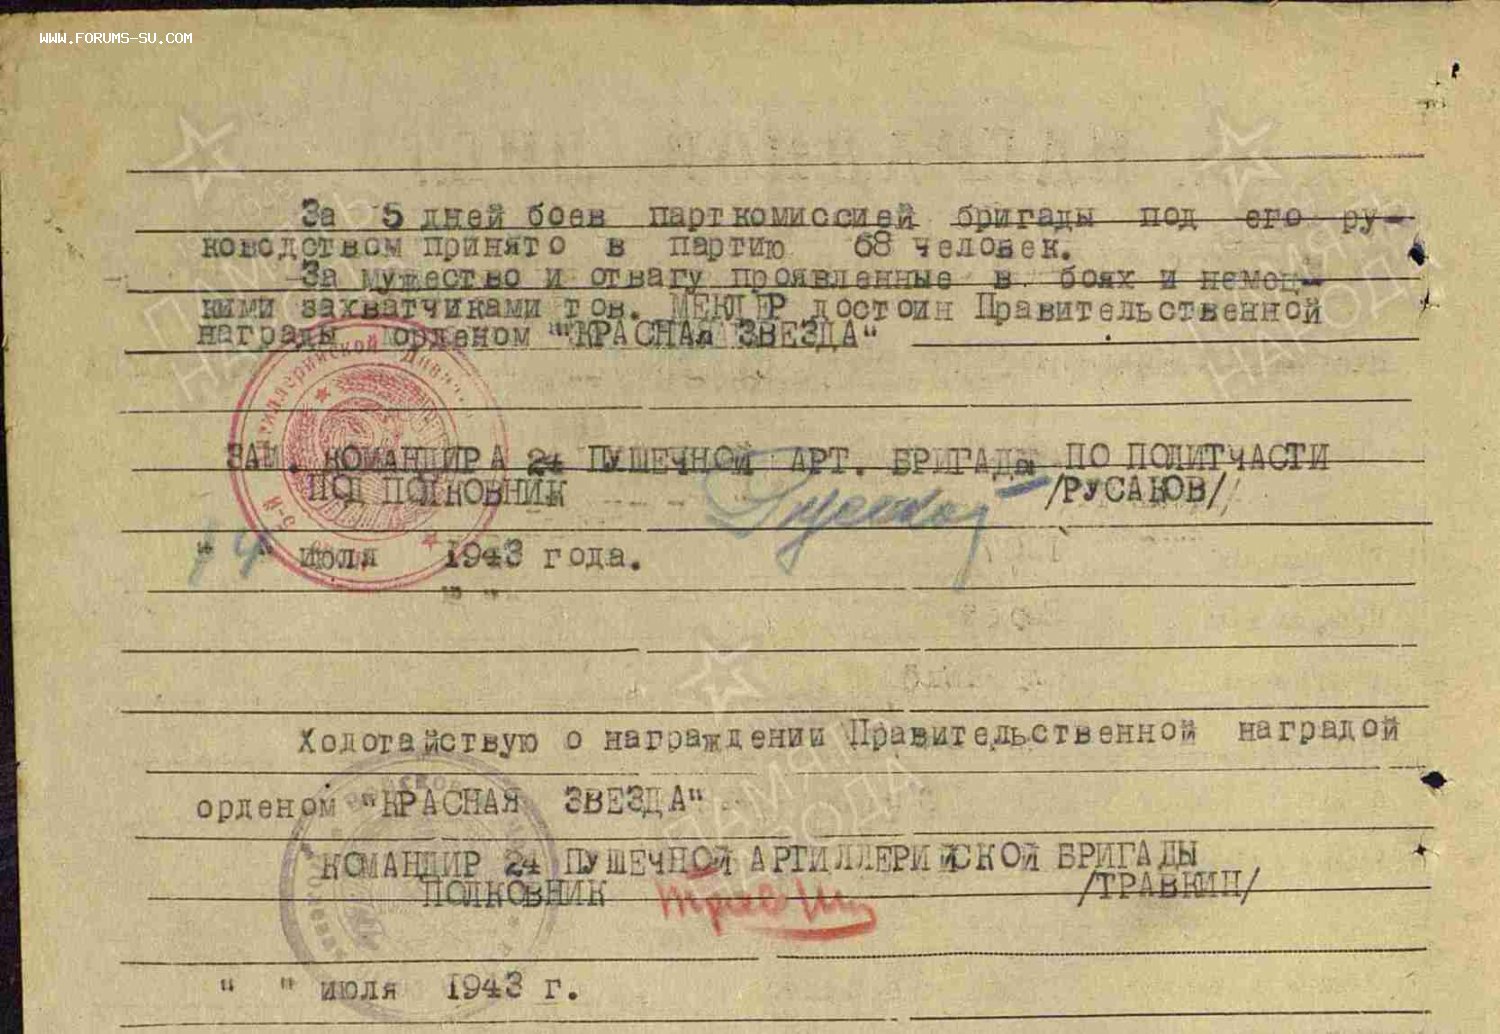 WWW.FORUMS-SU.COM
За 5 дней боев парткомиссией бригады под его ру-
ководством принято в партию 68 человек.
За мужество и отвагу проявленные в боях и немец-
кими захватчиками тов. МЕКЛЕР достоин Правительственной
награды орденом ""КРАСНАЯ ЗВЕЗДА"
ЗАМ. КОМАНДИРА 24 ПУШЕЧНОЙ АРТ. БРИГАДЫ ПО ПОЛИТЧАСТИ
ПОДПОЛКОВНИК /РУСАКОВ/
"14" июля 1943 года.
Ходотайствую о награждении Правительственной наградой
орденом "КРАСНАЯ ЗВЕЗДА"
КОМАНДИР 24 ПУШЕЧНОЙ АРТИЛЛЕРИЙСКОЙ БРИГАДЫ
ПОЛКОВНИК /ТРАВКИН/
" " июля 1943 г.
ПАМЯТЬ НАРОДА